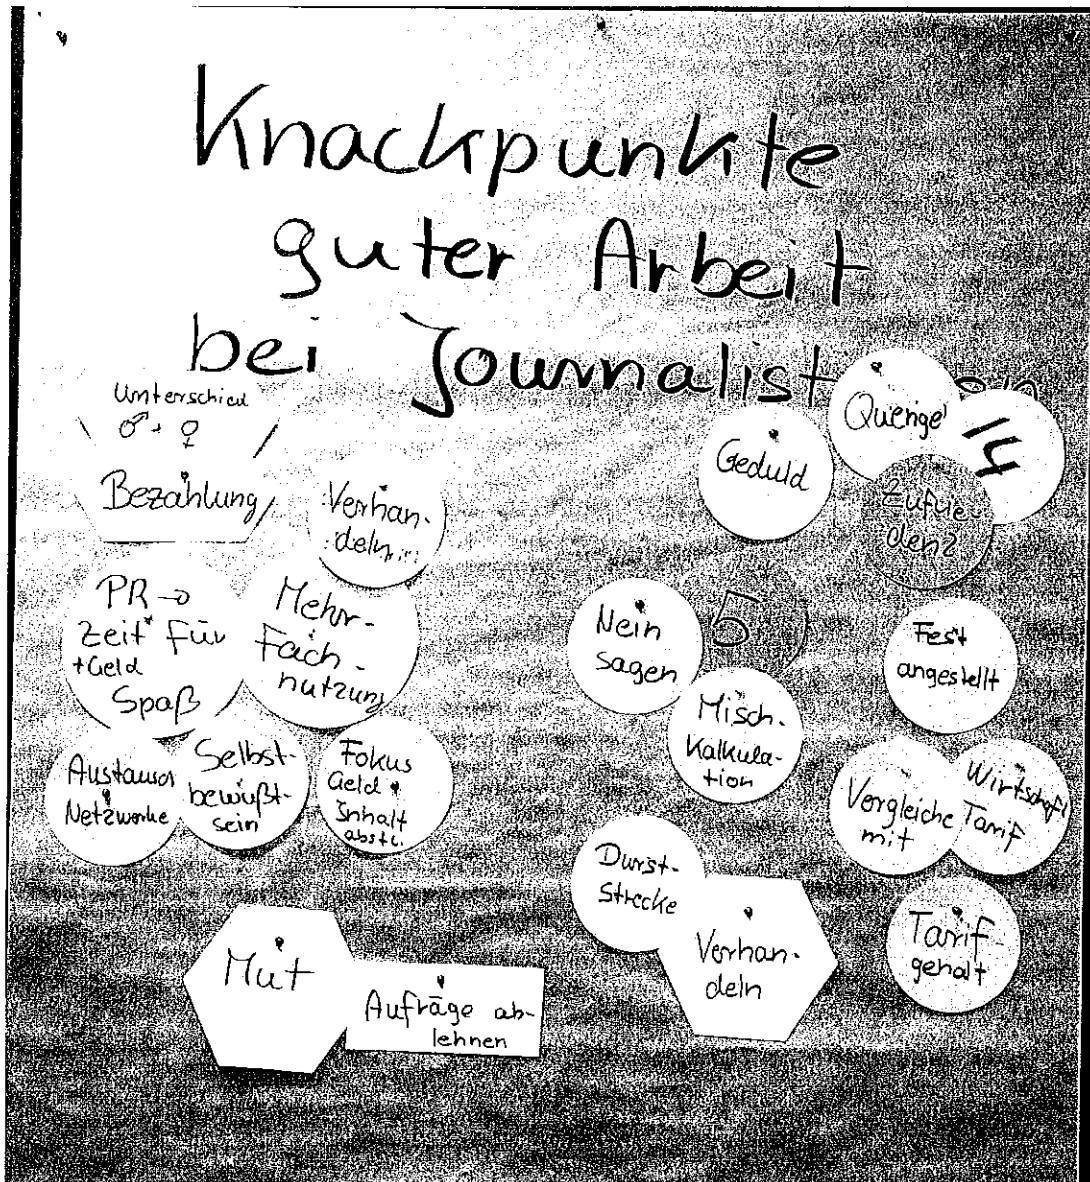 Knackpunkte
guter Arbeit
bei Journalist
Unterschied
♂ + ♀
Bezahlung
Verhan-
deln...
PR →
Zeit für
+ Geld
Spaß
Mehr-
fach-
nutzung
Austausch
Netzwerke
Selbst-
bewußt-
sein
Fokus
Geld
Inhalt
Mut
Aufträge ab-
lehnen
Geduld
14
Zufrie-
den?
Nein
sagen
5
Misch-
Kalkula-
tion
Fest
angestellt
Vergleiche
mit
Wirtschaft
Tarif
Durst-
strecke
Verhan-
deln
Tarif-
gehalt